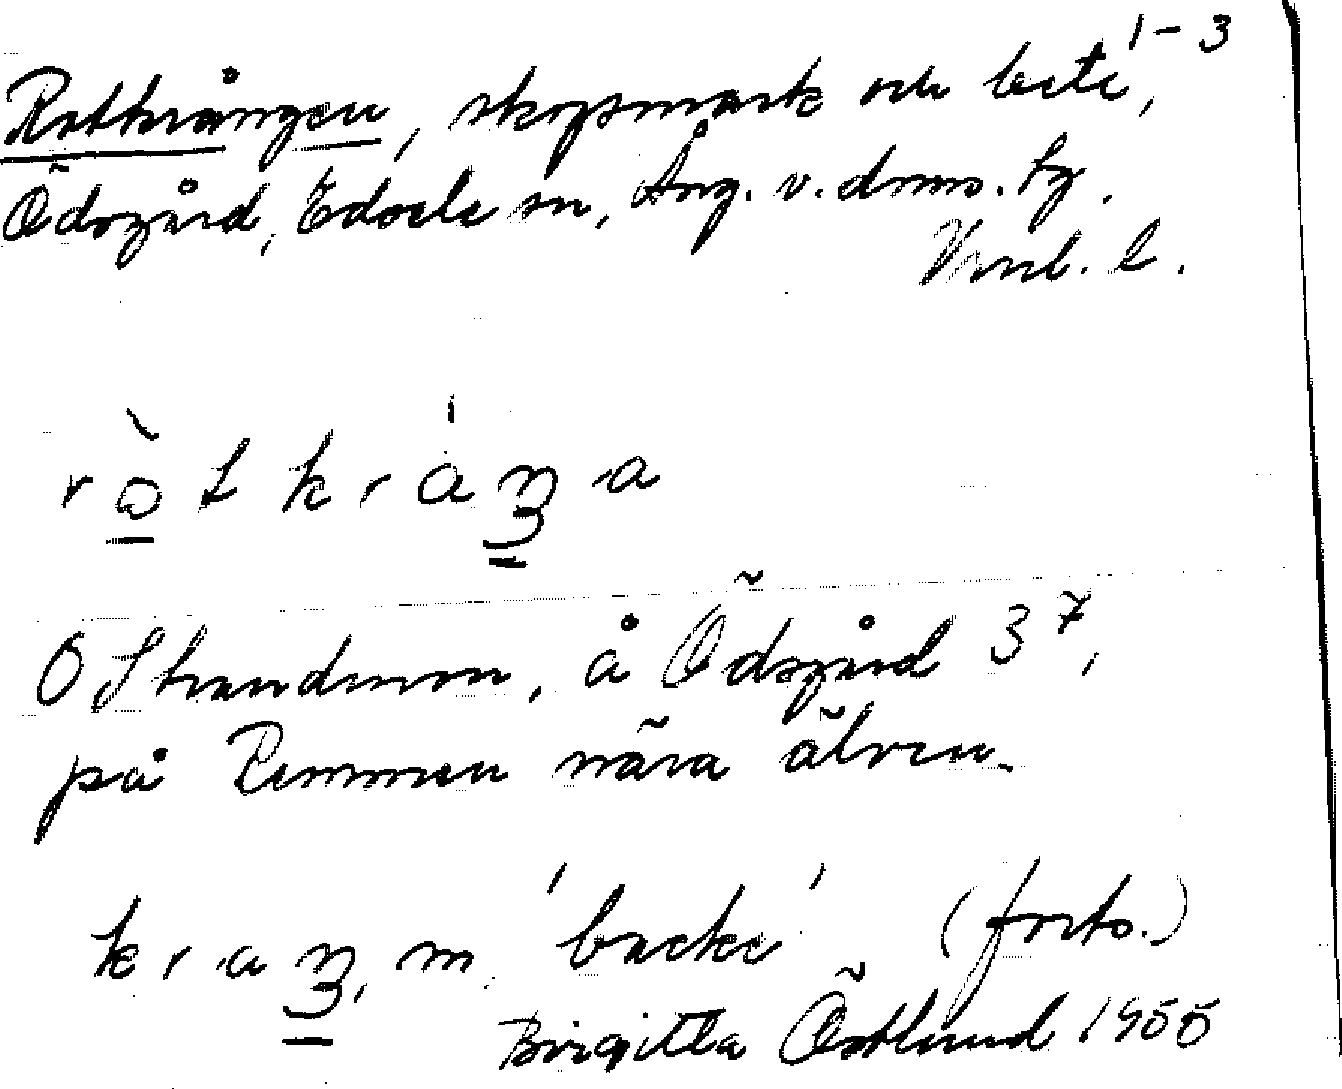 1-3
Rotkrången, skogsmark och bete,
Ödsgård, Edsele sn, Ång. v. doms. tg.
Vnl. l.
ròt kráŋa
O Strandmon, å Ödsgård 3⁷,
på Remmen nära älven.
kraŋ, m. 'backe' (forts.)
Birgitta Östlund 1955